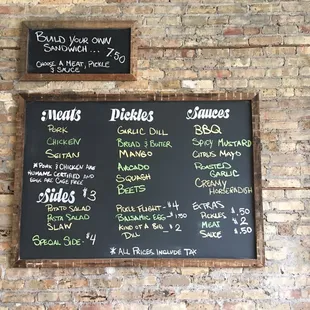 Build your own
Sandwich... 7.50
Choose a Meat, Pickle
& Sauce
Meats
Pork
Chicken
Seitan
* Pork & Chicken are
Humanely Certified and
Eggs are cage free
Sides $3
Potato Salad
Pasta Salad
Slaw
Special Side- $4
Pickles
Garlic Dill
Bread & Butter
Mango
Avocado
Squash
Beets
Pickle Flight - $4
Balsamic Egg - $1.50
Kind of a Big - $2
Dill
Sauces
BBQ
Spicy Mustard
Citrus Mayo
Roasted
Garlic
Creamy
Horseradish
Extra's
Pickles $.50
Meat $2
Sauce $.50
* All Prices Include Tax